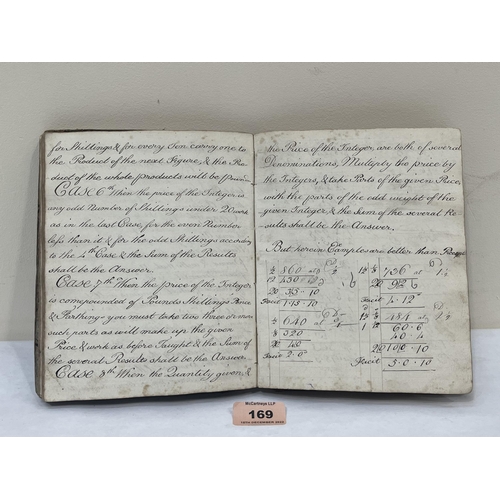 for Shillings & for every Son carry one to
the Product of the next Figure, & the Pro
duct of the whole products will be found
Case 6th When the price of the Integer is
any odd Number of Shillings under 20 work
as in the last Case, for the even Number
less than it & for the odd Shillings according
to the 4th Case & the Sum of the Results
shall be the Answer.
Case 7th When the price of the Integer
is compounded of Pounds Shillings Pence
& Farthing you must take two three or more
such parts as will make up the given
Price & work as before Taught & the Sum of
the several Results shall be the Answer
Case 8th When the Quantity given &
the Price of the Integer, are both of several
Denominations, Multiply the price by
the Integers, & take Parts of the given Price
with the parts of the odd weight of the
given Integer & the Sum of the several Re
sults shall be the Answer.
But herein Examples are better than
860 at
430
20
Facit 1.15.10
640 at
320
Facit 2.0
736 at
20 92
Facit 4.12
484 at
60.6
40.4
100.10
Facit 5.0.10
McCartneys LLP
169